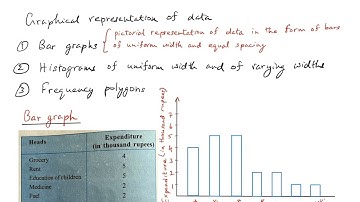 Graphical representation of data
① Bar graphs { pictorial representation of data in the form of bars
of uniform width and equal spacing
② Histograms of uniform width and of varying widths
③ Frequency polygons
Bar graph
Heads Expenditure
(in thousand rupees)
Grocery 4
Rent 5
Education of children 5
Medicine 2
Fuel 2
Expenditure (in thousand rupees)
7
6
5
4
3
2
1